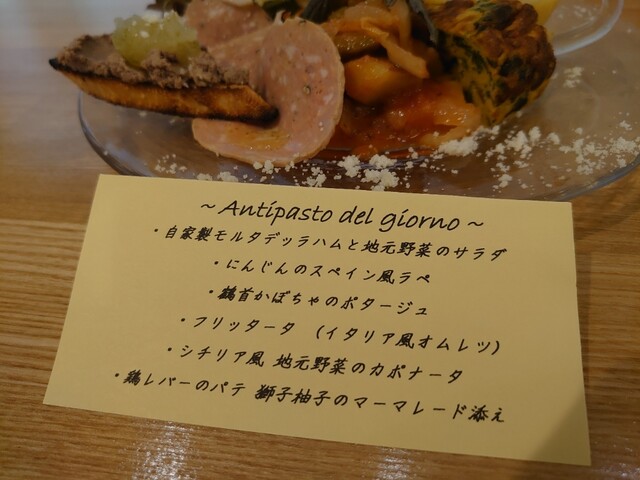 ~ Antipasto del giorno ~
・自家製モルタデッラハムと地元野菜のサラダ
・にんじんのスペイン風ラペ
・鶴首かぼちゃのポタージュ
・フリッタータ （イタリア風オムレツ）
・シチリア風 地元野菜のカポナータ
・鶏レバーのパテ 獅子柚子のマーマレード添え